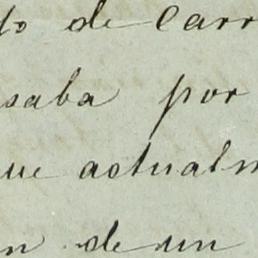 do de Carr
saba por
ue actualm
n de un